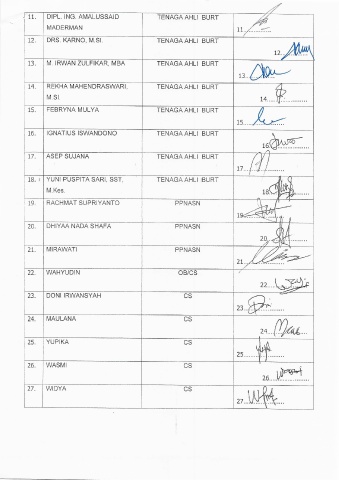 11. DIPL. ING. AMALUSSAID MADERMAN TENAGA AHLI BURT 11
12. DRS. KARNO, M.SI. TENAGA AHLI BURT 12.
13. M IRWAN ZULFIKAR, MBA TENAGA AHLI BURT 13.
14. REKHA MAHENDRASWARI, M.SI. TENAGA AHLI BURT 14.
15. FEBRYNA MULYA TENAGA AHLI BURT 15
16. IGNATIUS ISWANDONO TENAGA AHLI BURT 16
17. ASEP SUJANA TENAGA AHLI BURT 17
18. YUNI PUSPITA SARI, SST, M.Kes. TENAGA AHLI BURT 18
19. RACHMAT SUPRIYANTO PPNASN 19
20. DHIYAA NADA SHAFA PPNASN 20
21. MIRAWATI PPNASN 21
22. WAHYUDIN OB/CS 22
23. DONI IRWANSYAH CS 23
24. MAULANA CS 24.
25. YUPIKA CS 25
26. WASMI CS 26
27. WIDYA CS 27